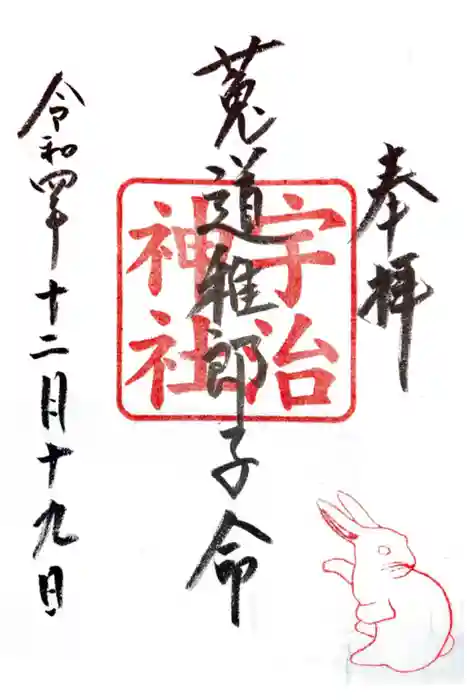 奉拝
菟道稚郎子命
宇治
神社
令和四年十二月十九日